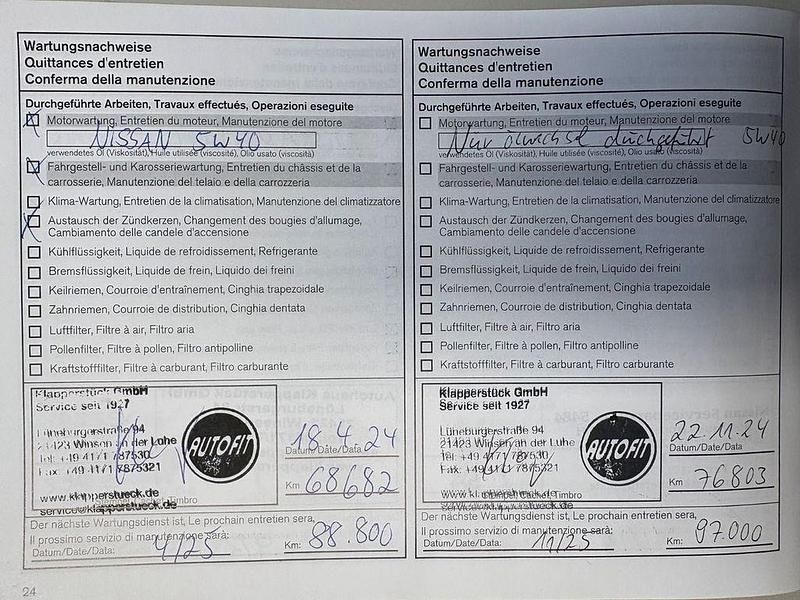 Wartungsnachweise
Quittances d'entretien
Conferma della manutenzione
Durchgeführte Arbeiten, Travaux effectués, Operazioni eseguite
Motorwartung, Entretien du moteur, Manutenzione del motore
NISSAN 5W40
verwendetes Öl (Viskosität), Huile utilisée (viscosité), Olio usato (viscosità)
Fahrgestell- und Karosseriewartung, Entretien du châssis et de la
carrosserie, Manutenzione del telaio e della carrozzeria
Klima-Wartung, Entretien de la climatisation, Manutenzione del climatizzatore
Austausch der Zündkerzen, Changement des bougies d'allumage,
Cambiamento delle candele d'accensione
Kühlflüssigkeit, Liquide de refroidissement, Refrigerante
Bremsflüssigkeit, Liquide de frein, Liquido dei freini
Keilriemen, Courroie d'entraînement, Cinghia trapezoidale
Zahnriemen, Courroie de distribution, Cinghia dentata
Luftfilter, Filtre à air, Filtro aria
Pollenfilter, Filtre à pollen, Filtro antipolline
Kraftstofffilter, Filtre à carburant, Filtro carburante
Klapperstück GmbH
Service seit 1927
Lüneburgerstraße 94
21423 Winsen an der Luhe
Tel: +49 4171 787530
Fax: +49 4171 7875321
www.klapperstueck.de
service@klapperstueck.de
Stempel, Cachet, Timbro
AUTOFIT
18.4.24
Datum/Date/Data
Km 68682
Der nächste Wartungsdienst ist, Le prochain entretien sera,
Il prossimo servizio di manutenzione sarà:
Datum/Date/Data: 4/25 Km: 88.800
24
Wartungsnachweise
Quittances d'entretien
Conferma della manutenzione
Durchgeführte Arbeiten, Travaux effectués, Operazioni eseguite
Motorwartung, Entretien du moteur, Manutenzione del motore
Nur Ölwechsel durchgeführt 5W40
verwendetes Öl (Viskosität), Huile utilisée (viscosité), Olio usato (viscosità)
Fahrgestell- und Karosseriewartung, Entretien du châssis et de la
carrosserie, Manutenzione del telaio e della carrozzeria
Klima-Wartung, Entretien de la climatisation, Manutenzione del climatizzatore
Austausch der Zündkerzen, Changement des bougies d'allumage,
Cambiamento delle candele d'accensione
Kühlflüssigkeit, Liquide de refroidissement, Refrigerante
Bremsflüssigkeit, Liquide de frein, Liquido dei freini
Keilriemen, Courroie d'entraînement, Cinghia trapezoidale
Zahnriemen, Courroie de distribution, Cinghia dentata
Luftfilter, Filtre à air, Filtro aria
Pollenfilter, Filtre à pollen, Filtro antipolline
Kraftstofffilter, Filtre à carburant, Filtro carburante
Klapperstück GmbH
Service seit 1927
Lüneburgerstraße 94
21423 Winsen an der Luhe
Tel: +49 4171 787530
Fax: +49 4171 7875321
www.klapperstueck.de
service@klapperstueck.de
Stempel, Cachet, Timbro
AUTOFIT
22.11.24
Datum/Date/Data
Km 76803
Der nächste Wartungsdienst ist, Le prochain entretien sera,
Il prossimo servizio di manutenzione sarà:
Datum/Date/Data: 11/25 Km: 97.000